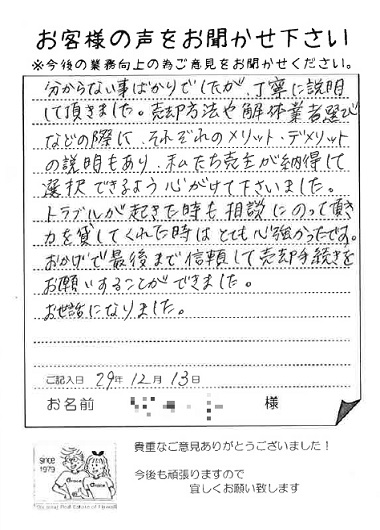 お客様の声をお聞かせ下さい
※今後の業務向上の為ご意見をお聞かせください。
分からない事ばかりでしたが、丁寧に説明
して頂きました。売却方法や解体業者選び
などの際に、それぞれのメリット・デメリット
の説明もあり、私たち売主が納得して
選択できるよう心がけて下さいました。
トラブルが起きた時も相談にのって頂き
力を貸してくれた時はとても心強かったです。
おかげで最後まで信頼して売却手続きを
お願いすることができました。
お世話になりました。
ご記入日 29年 12月 13日
お名前 様
since
1979
貴重なご意見ありがとうございました！
今後も頑張りますので
宜しくお願い致します